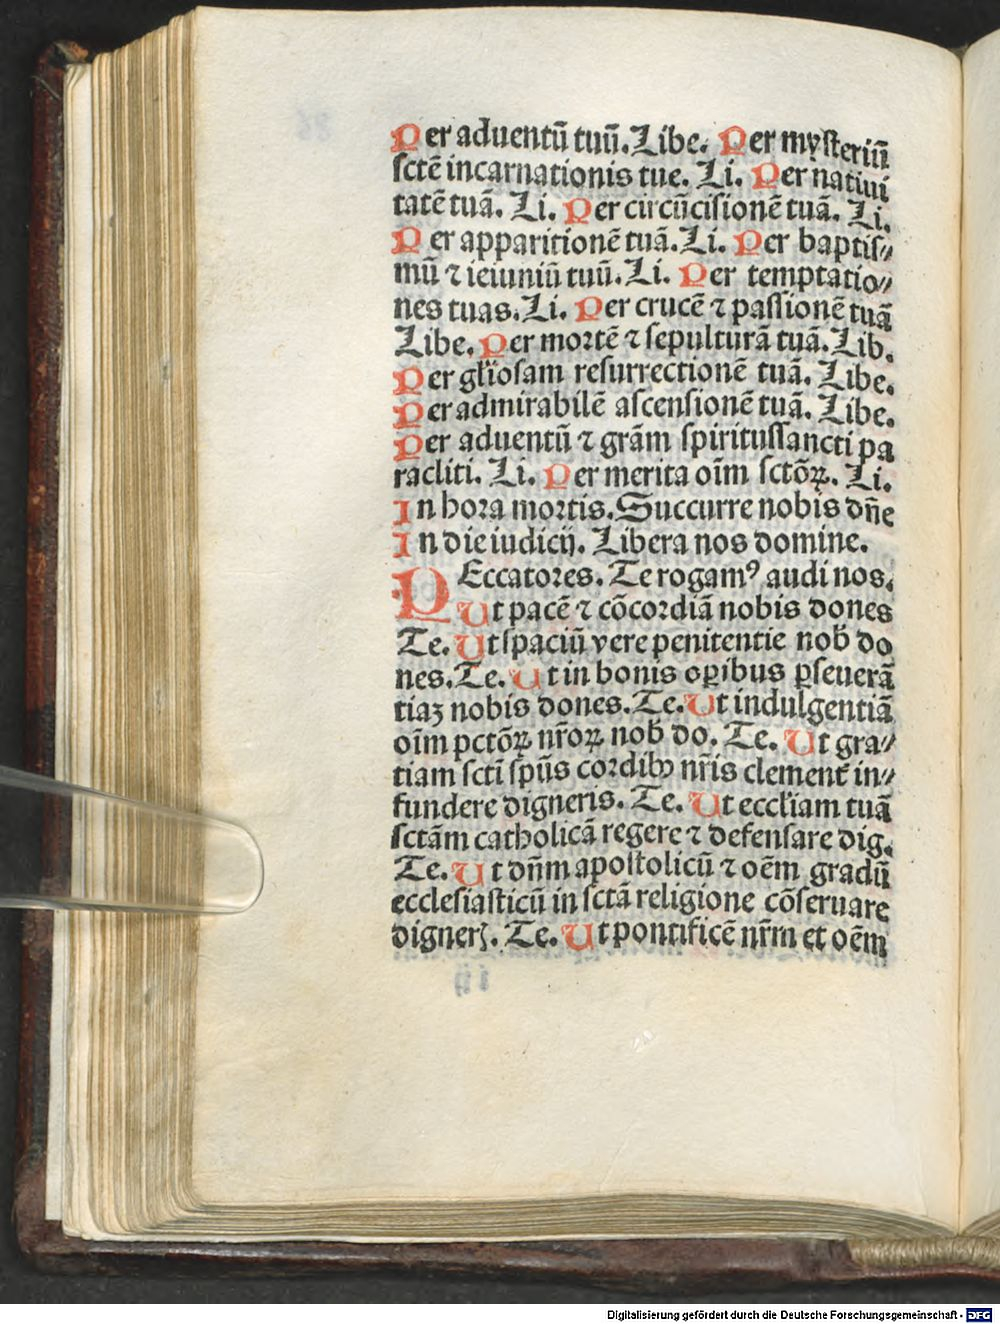 Per aduentū tuū. Libe. Per mysteriū
sctē incarnationis tue. Li. Per natiui
tatē tuā. Li. Per circūcisionē tuā. Li.
Per apparitionē tuā. Li. Per baptis⸗
mū ⁊ ieiuniū tuū. Li. Per temptatio⸗
nes tuas. Li. Per crucē ⁊ passionē tuā
Libe. Per mortē ⁊ sepulturā tuā. Lib.
Per gl̄iosam resurrectionē tuā. Libe.
Per admirabilē ascensionē tuā. Libe.
Per aduentū ⁊ grām spiritussancti pa
racliti. Li. Per merita oīm sctōꝝ. Li.
In hora mortis. Succurre nobis dn̄e
In die iudicij. Libera nos domine.
PEccatores. Te rogamꝰ audi nos.
Ut pacē ⁊ cōcordiā nobis dones
Te. Ut spaciū vere penitentie nob̄ do
nes. Te. Ut in bonis oꝑibus ꝑseuerā
tiaꝫ nobis dones. Te. Ut indulgentiā
oīm pctōꝝ nr̄oꝝ nob̄ do. Te. Ut gra⸗
tiam scti sp̄us cordibꝰ nr̄is clement̄ in⸗
fundere digneris. Te. Ut eccl̄iam tuā
sctām catholicā regere ⁊ defensare dig.
Te. Ut dn̄m apostolicū ⁊ oēm gradū
ecclesiasticū in sctā religione cōseruare
digneꝝ. Te. Ut pontificē nr̄m et oēm
Digitalisierung gefördert durch die Deutsche Forschungsgemeinschaft - DFG